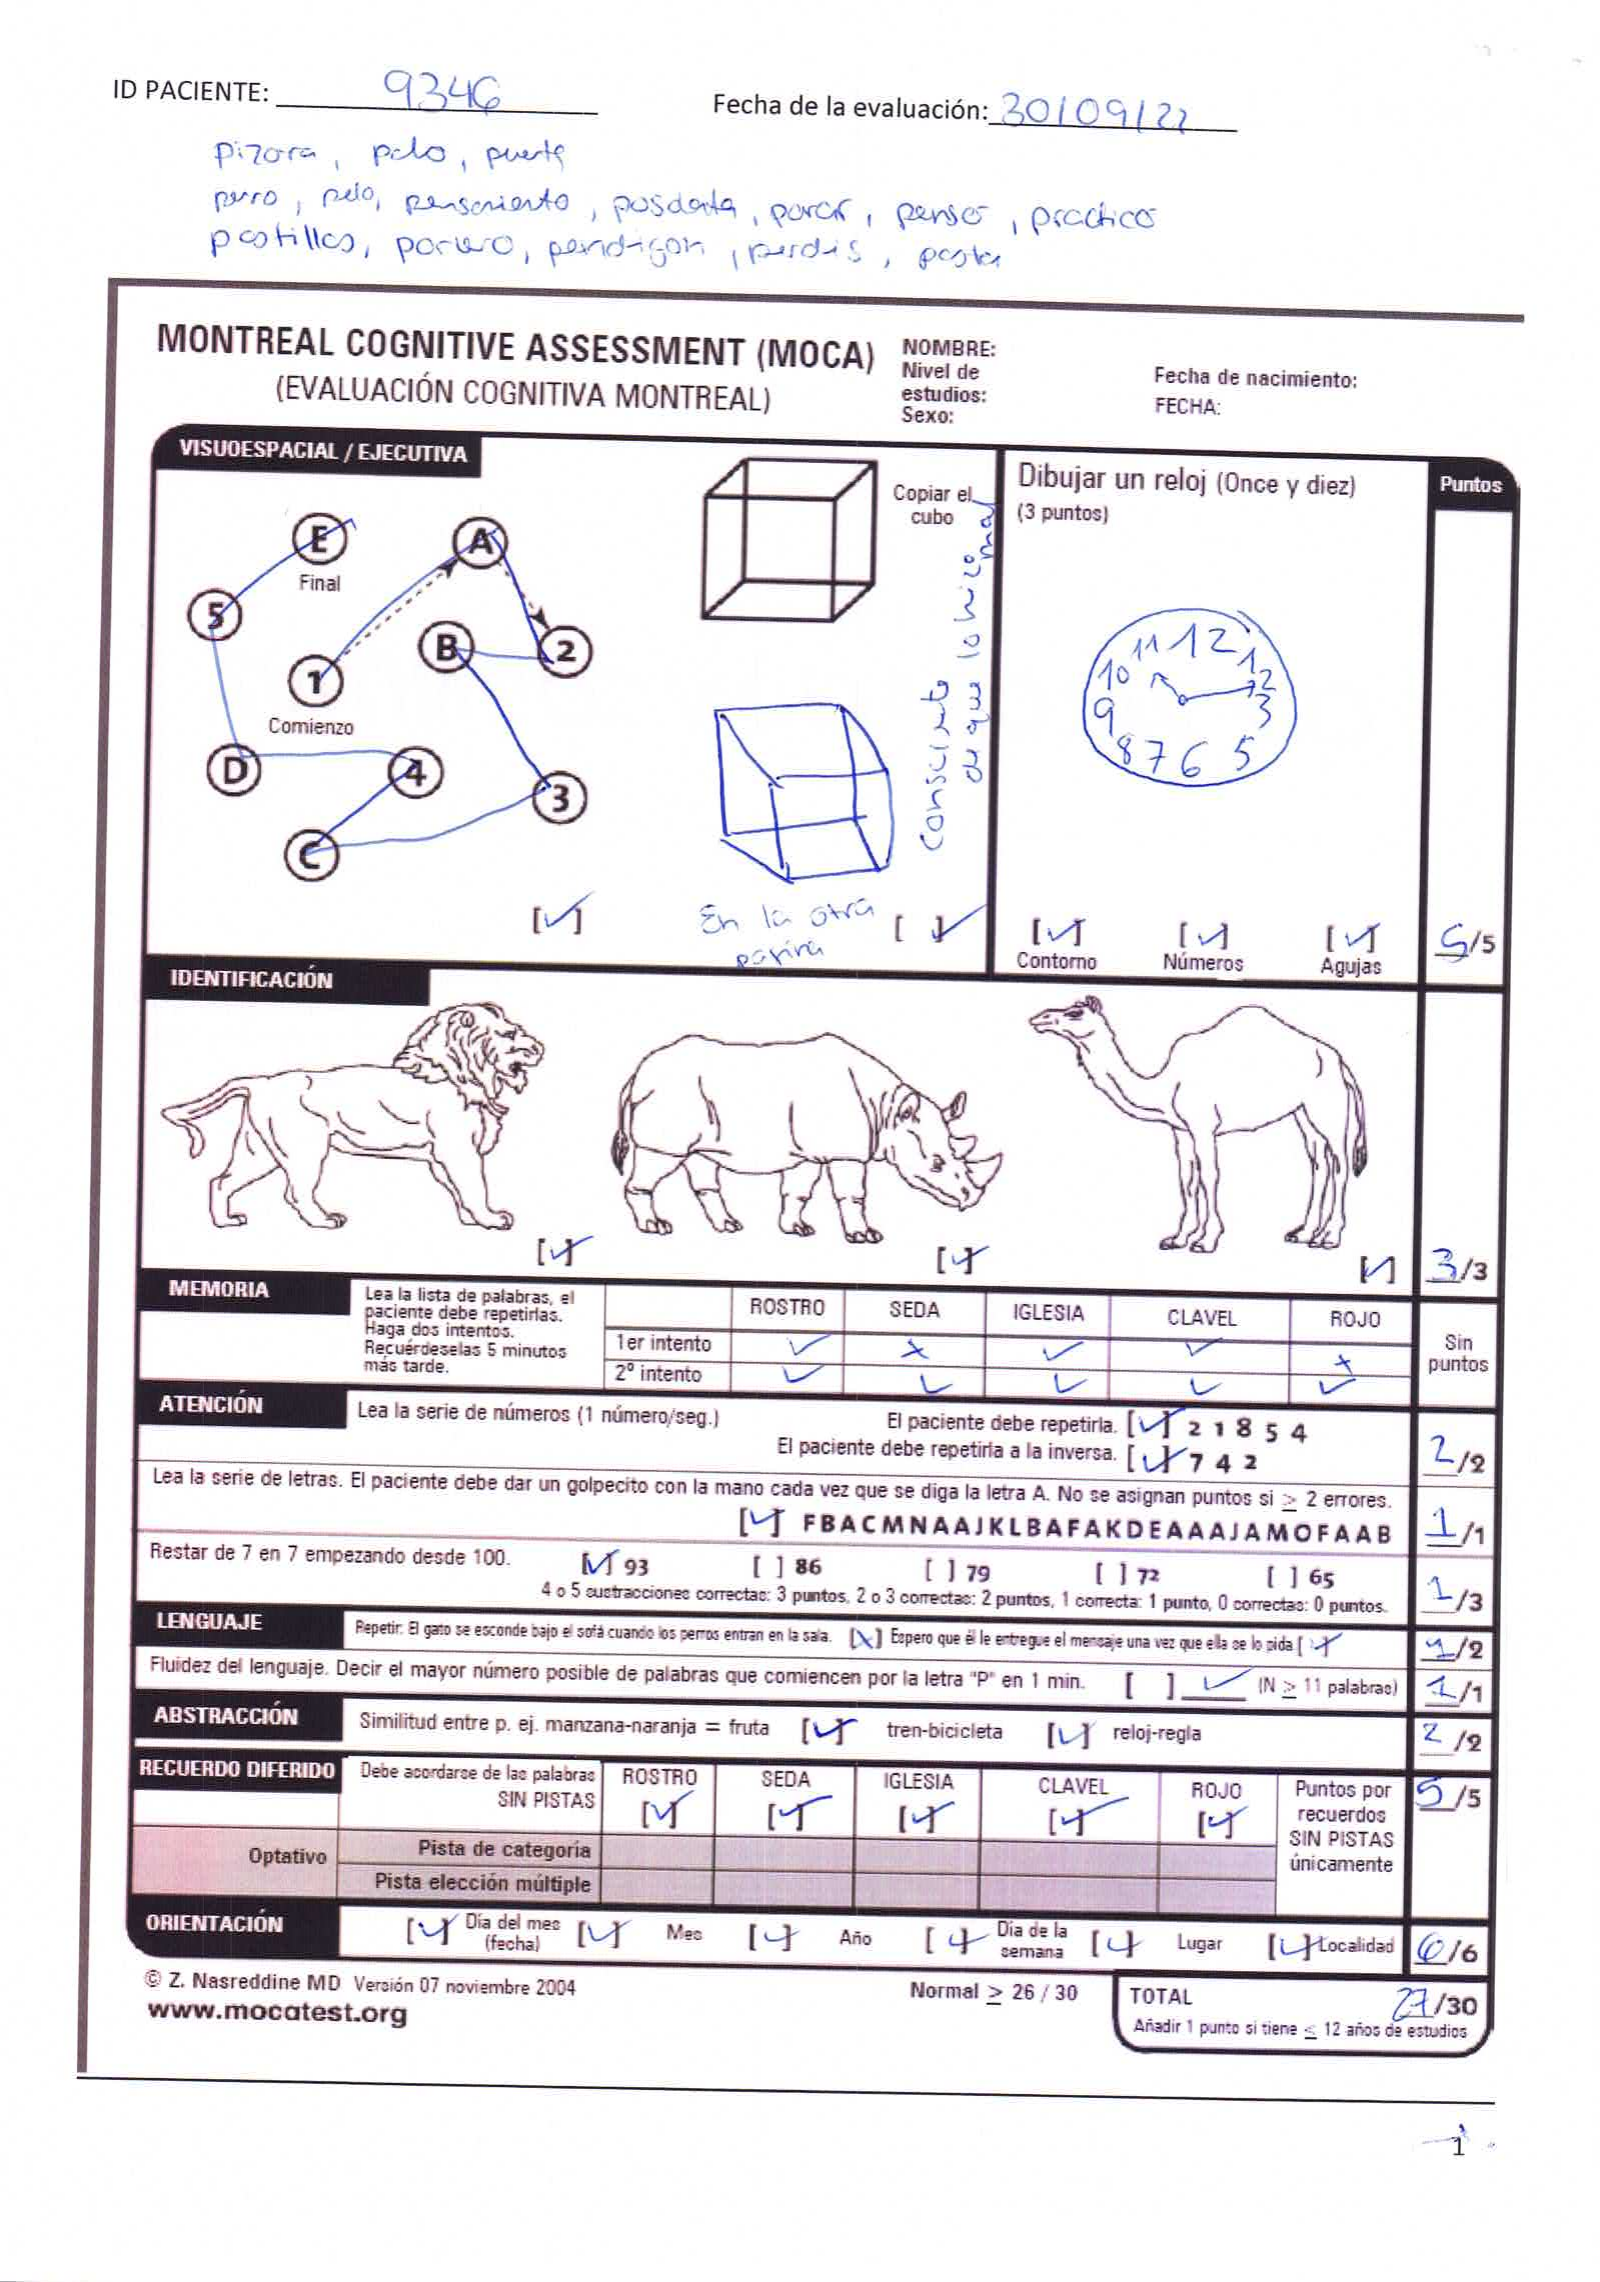 ID PACIENTE: 9346 Fecha de la evaluación: 30/09/22
pizara, palo, puerta
perro, pelo, pensamiento, posdata, parar, pensar, practicar
pastillas, perdigon, perdis, pasta
MONTREAL COGNITIVE ASSESSMENT (MOCA)
(EVALUACIÓN COGNITIVA MONTREAL)
NOMBRE:
Nivel de
estudios:
Sexo:
Fecha de nacimiento:
FECHA:
VISUOESPACIAL / EJECUTIVA
E
Final
A
5
B
2
1
Comienzo
D
4
3
C
[✓]
Copiar el
cubo
Consciente
de que lo hizo mal
En la otra
[ ] ✓
Dibujar un reloj (Once y diez)
(3 puntos)
11 12 1
10 2
9 3
8 7 6 5
[✓] [✓] [✓]
Contorno Números Agujas
Puntos
5/5
IDENTIFICACIÓN
[✓] [✓] [✓] 3/3
MEMORIA
Lea la lista de palabras, el
paciente debe repetirlas.
Haga dos intentos.
Recuérdeselas 5 minutos
más tarde.
ROSTRO SEDA IGLESIA CLAVEL ROJO
1er intento ✓ x ✓ ✓ x
2º intento ✓ ✓ ✓ ✓ ✓
Sin
puntos
ATENCIÓN
Lea la serie de números (1 número/seg.) El paciente debe repetirla. [✓] 2 1 8 5 4
El paciente debe repetirla a la inversa. [✓] 7 4 2 2/2
Lea la serie de letras. El paciente debe dar un golpecito con la mano cada vez que se diga la letra A. No se asignan puntos si ≥ 2 errores.
[✓] F B A C M N A A J K L B A F A K D E A A A J A M O F A A B 1/1
Restar de 7 en 7 empezando desde 100. [✓] 93 [ ] 86 [ ] 79 [ ] 72 [ ] 65
4 o 5 sustracciones correctas: 3 puntos, 2 o 3 correctas: 2 puntos, 1 correcta: 1 punto, 0 correctas: 0 puntos. 1/3
LENGUAJE
Repetir: El gato se esconde bajo el sofá cuando los perros entran en la sala. [x] Espero que él le entregue el mensaje una vez que ella se lo pida [✓] 1/2
Fluidez del lenguaje. Decir el mayor número posible de palabras que comiencen por la letra "P" en 1 min. [ ] ✓ (N ≥ 11 palabras) 1/1
ABSTRACCIÓN
Similitud entre p. ej. manzana-naranja = fruta [✓] tren-bicicleta [✓] reloj-regla 2/2
RECUERDO DIFERIDO
Debe acordarse de las palabras
SIN PISTAS
ROSTRO SEDA IGLESIA CLAVEL ROJO
[✓] [✓] [✓] [✓] [✓]
Puntos por
recuerdos
SIN PISTAS
únicamente
5/5
Optativo
Pista de categoría
Pista elección múltiple
ORIENTACIÓN
[✓] Día del mes
(fecha)
[✓] Mes [✓] Año [✓] Día de la
semana
[✓] Lugar [✓] Localidad 6/6
© Z. Nasreddine MD Versión 07 noviembre 2004
www.mocatest.org
Normal ≥ 26 / 30
TOTAL 27/30
Añadir 1 punto si tiene ≤ 12 años de estudios
1